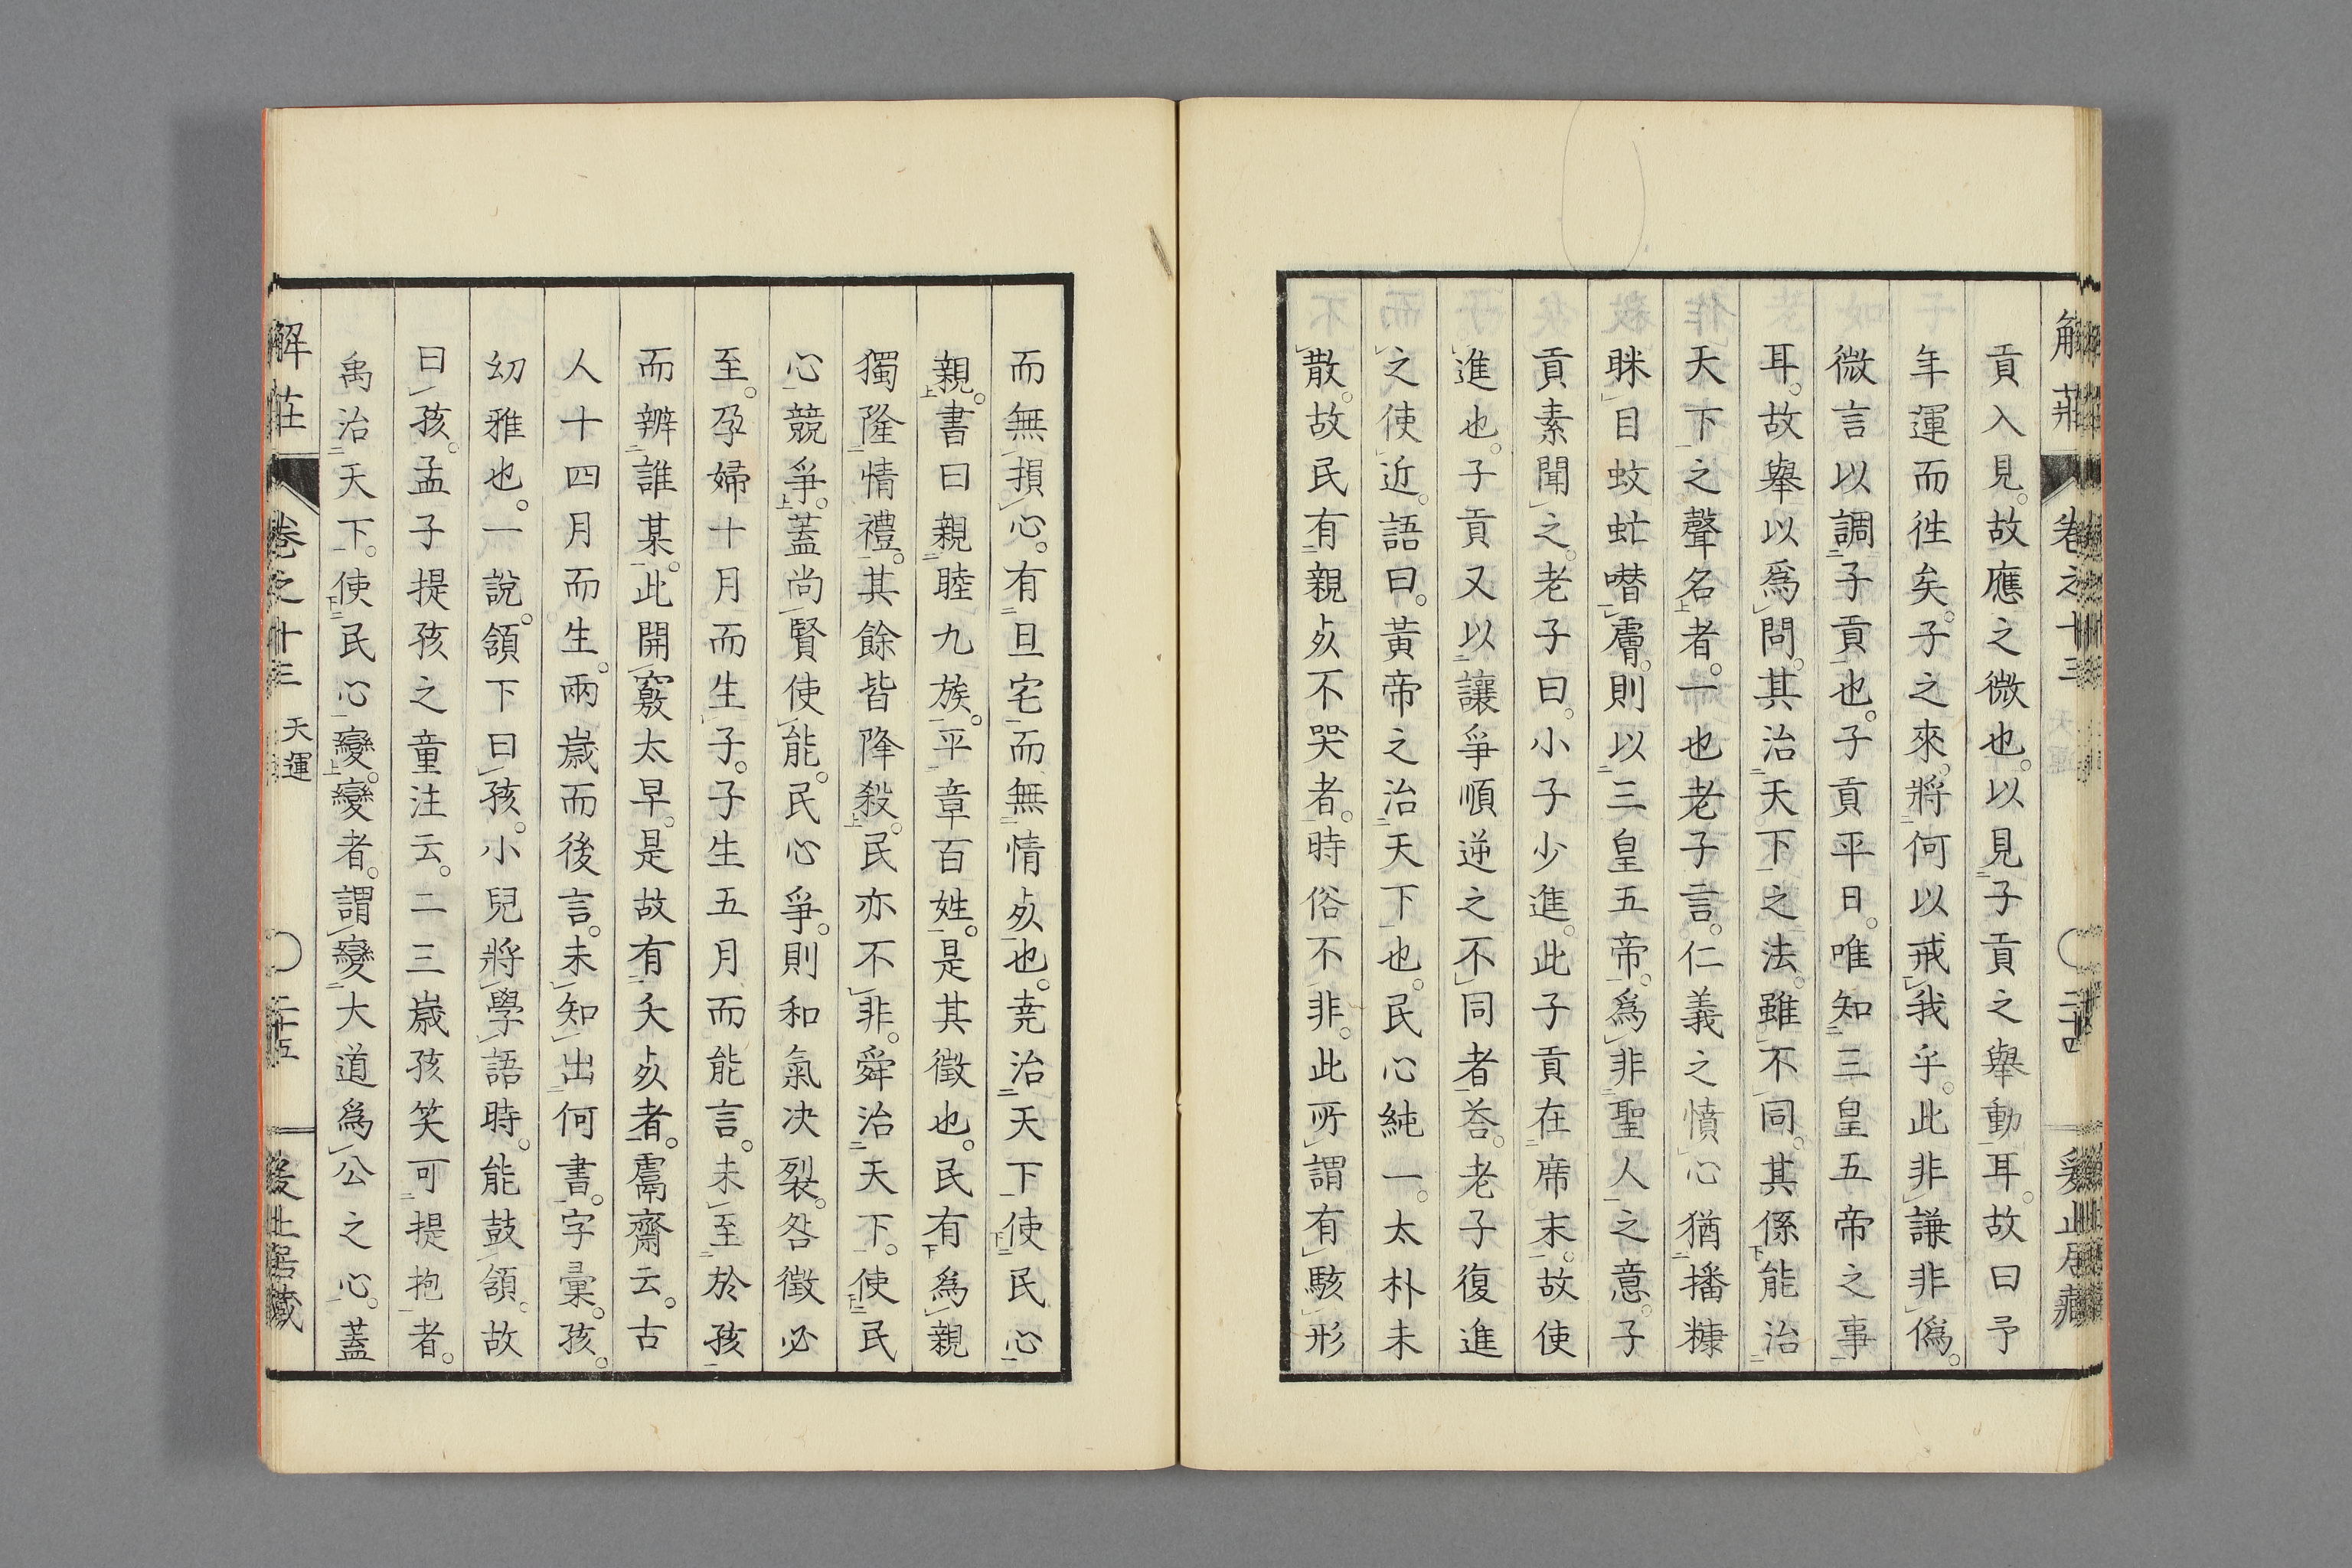 解莊 卷之十三 二十四 爰止居藏
貢入見。故應之微也。以見二子貢之舉動一耳。故曰予
年運而徃矣。子之來。將三何以戒我乎。此非謙非僞。
微言以調二子貢一也。子貢平日。唯知二三皇五帝之事一
耳。故舉以爲問。其治二天下一之法。雖不同。其係下能治二
天下一之聲名上者。一也老子言。仁義之憤心猶二播糠
眯目蚊虻噆一膚。則以二三皇五帝一。爲非二聖人一之意。子
貢素聞之。老子曰。小子少進。此子貢在二席末一。故使
進也。子貢又以二讓爭順逆之不同者一荅。老子復進
之使近。語曰。黃帝之治二天下一也。民心純一。太朴未
散。故民有二親死不哭者一。時俗不非。此所謂有駭形
而無損心。有二旦宅一而無二情死一也。堯治二天下一使下民心一
親上。書曰親二睦九族一。平二章百姓一。是其徵也。民有下爲親
獨隆二情禮一。其餘皆降殺上。民亦不非。舜治二天下一。使下二民
心一競爭上。蓋尚賢使能。民心爭。則和氣决裂。咎徵必
至。孕婦十月而生子。子生五月而能言。未至二於孩一
而辨二誰某一。此開竅太早。是故有二夭死者一。鬳齋云。古
人十四月而生。兩歲而後言。未知出二何書一。字彙。孩。
幼雅也。一說。頷下曰孩。小兒將學語時。能鼓頷。故
曰孩。孟子提孩之童注云。二三歲孩笑可二提抱一者。
禹治二天下一。使下二民心一變上。變者。謂變二大道爲公之心一。蓋
解莊 卷之十三 天運 二十五 爰止居藏